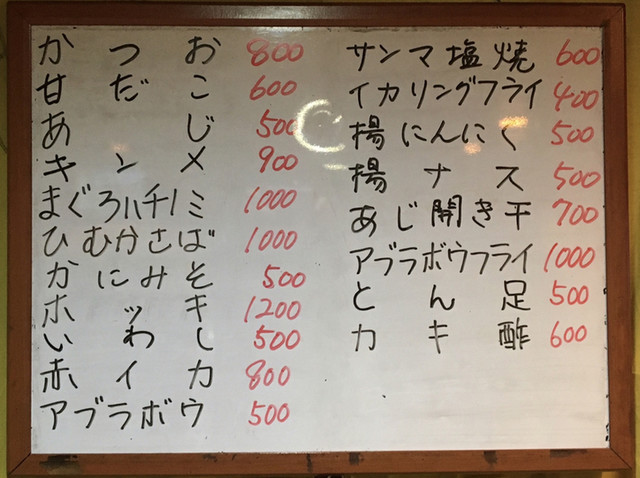 かつお 800
甘だこ 600
あじ 500
キンメ 900
まぐろハチノミ 1000
ひむかさば 1000
かにみそ 500
ホッキ 1200
いわし 500
赤イカ 800
アブラボウ 500
サンマ塩焼 600
イカリングフライ 400
揚にんにく 500
揚ナス 500
あじ開き干 700
アブラボウフライ 1000
とん足 500
カキ酢 600